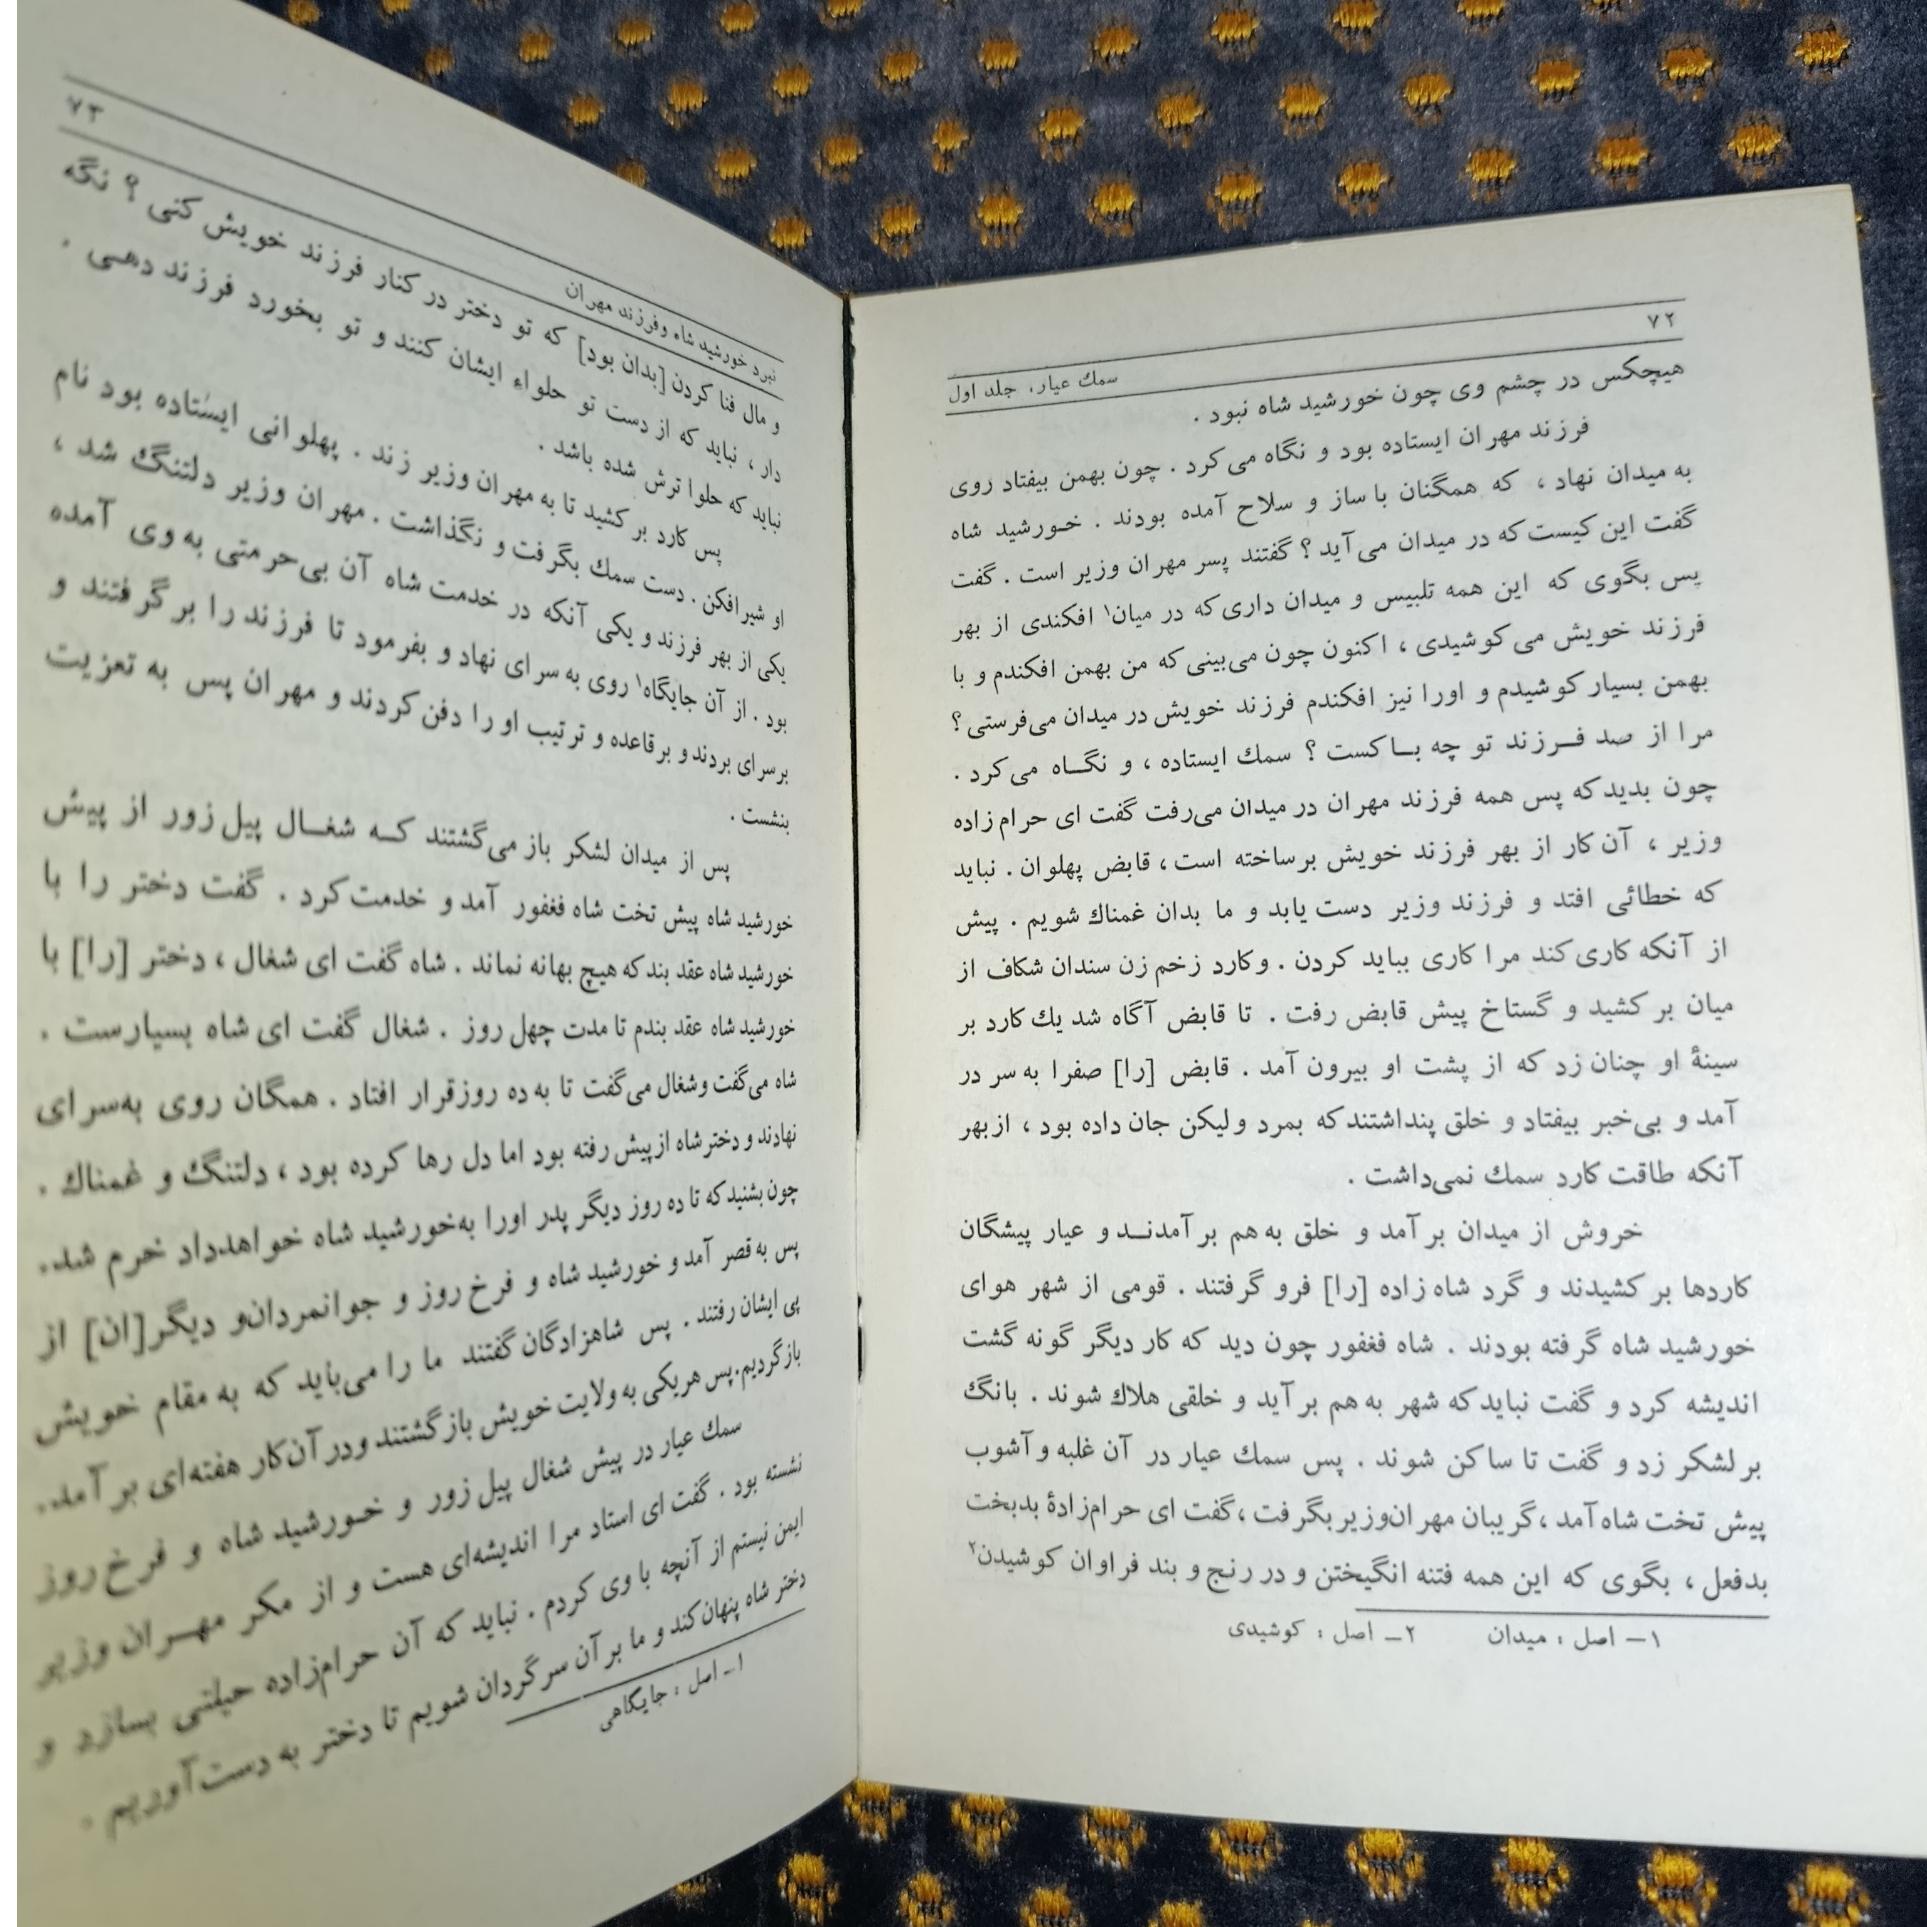 ۷۲
سمك عیار، جلد اول
هیچکس در چشم وی چون خورشید شاه نبود .
فرزند مهران ایستاده بود و نگاه می‌کرد . چون بهمن بیفتاد روی
به میدان نهاد ، که همگنان با ساز و سلاح آمده بودند . خورشید شاه
گفت این کیست که در میدان می‌آید ؟ گفتند پسر مهران وزیر است . گفت
پس بگوی که این همه تلبیس و میدان داری که در میان۱ افکندی از بهر
فرزند خویش می‌کوشیدی ، اکنون چون می‌بینی که من بهمن افکندم و با
بهمن بسیار کوشیدم و اورا نیز افکندم فرزند خویش در میدان می‌فرستی ؟
مرا از صد فرزند تو چه باکست ؟ سمك ایستاده ، و نگاه می‌کرد .
چون بدید که پس همه فرزند مهران در میدان می‌رفت گفت ای حرام زاده
وزیر ، آن کار از بهر فرزند خویش برساخته است ، قابض پهلوان . نباید
که خطائی افتد و فرزند وزیر دست یابد و ما بدان غمناك شویم . پیش
از آنکه کاری کند مرا کاری بباید کردن . و کارد زخم زن سندان شکاف از
میان بر کشید و گستاخ پیش قابض رفت . تا قابض آگاه شد یك کارد بر
سینهٔ او چنان زد که از پشت او بیرون آمد . قابض [را] صفرا به سر در
آمد و بی‌خبر بیفتاد و خلق پنداشتند که بمرد ولیکن جان داده بود ، از بهر
آنکه طاقت کارد سمك نمی‌داشت .
خروش از میدان بر آمد و خلق به هم بر آمدند و عیار پیشگان
کاردها بر کشیدند و گرد شاه زاده [را] فرو گرفتند . قومی از شهر هوای
خورشید شاه گرفته بودند . شاه فغفور چون دید که کار دیگر گونه گشت
اندیشه کرد و گفت نباید که شهر به هم بر آید و خلقی هلاك شوند . بانگ
بر لشکر زد و گفت تا ساکن شوند . پس سمك عیار در آن غلبه و آشوب
پیش تخت شاه آمد ، گریبان مهران‌وزیر بگرفت ، گفت ای حرام‌زادهٔ بدبخت
بدفعل ، بگوی که این همه فتنه انگیختن و در رنج و بند فراوان کوشیدن۲
۱– اصل : میدان ۲– اصل : کوشیدی
نبرد خورشید شاه و فرزند مهران
۷۳
و مال فنا کردن [بدان بود] که تو دختر در کنار فرزند خویش کنی ؟ نگه
دار ، نباید که از دست تو حلواء ایشان کنند و تو بخورد فرزند دهی .
نباید که حلوا ترش شده باشد .
پس کارد بر کشید تا به مهران وزیر زند . پهلوانی ایستاده بود نام
او شیرافکن . دست سمك بگرفت و نگذاشت . مهران وزیر دلتنگ شد ،
یکی از بهر فرزند و یکی آنکه در خدمت شاه آن بی‌حرمتی به وی آمده
بود . از آن جایگاه۱ روی به سرای نهاد و بفرمود تا فرزند را بر گرفتند و
برسرای بردند و بر قاعده و ترتیب او را دفن کردند و مهران پس به تعزیت
بنشست .
پس از میدان لشکر باز می‌گشتند که شغال پیل زور از پیش
خورشید شاه پیش تخت شاه فغفور آمد و خدمت کرد . گفت دختر را با
خورشید شاه عقد بند که هیچ بهانه نماند . شاه گفت ای شغال ، دختر [را] با
خورشید شاه عقد بندم تا مدت چهل روز . شغال گفت ای شاه بسیارست .
شاه می‌گفت و شغال می‌گفت تا به ده روز قرار افتاد . همگان روی به‌سرای
نهادند و دختر شاه از پیش رفته بود اما دل رها کرده بود ، دلتنگ و غمناك .
چون بشنید که تا ده روز دیگر پدر اورا به‌خورشید شاه خواهدداد خرم شد.
پس به قصر آمد و خورشید شاه و فرخ روز و جوانمردان‌و دیگر[ان] از
پی ایشان رفتند . پس شاهزادگان گفتند ما را می‌باید که به مقام خویش
بازگردیم. پس هریکی به ولایت خویش بازگشتند و در آن‌کار هفته‌ای بر آمد.
سمك عیار در پیش شغال پیل زور و خورشید شاه و فرخ روز
نشسته بود . گفت ای استاد مرا اندیشه‌ای هست و از مکر مهران وزیر
ایمن نیستم از آنچه با وی کردم . نباید که آن حرام‌زاده حیلتی بسازد و
دختر شاه پنهان کند و ما بر آن سرگردان شویم تا دختر به دست آوریم .
۱– اصل : جایگاهی